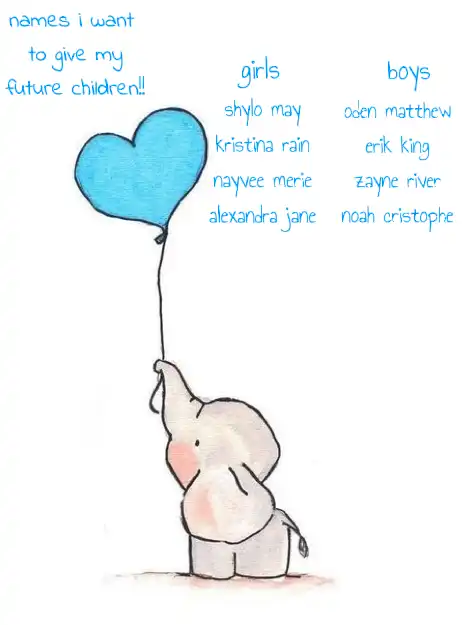 names i want
to give my
future children!!
girls
shylo may
kristina rain
nayvee merie
alexandra jane
boys
oden matthew
erik king
zayne river
noah cristophe